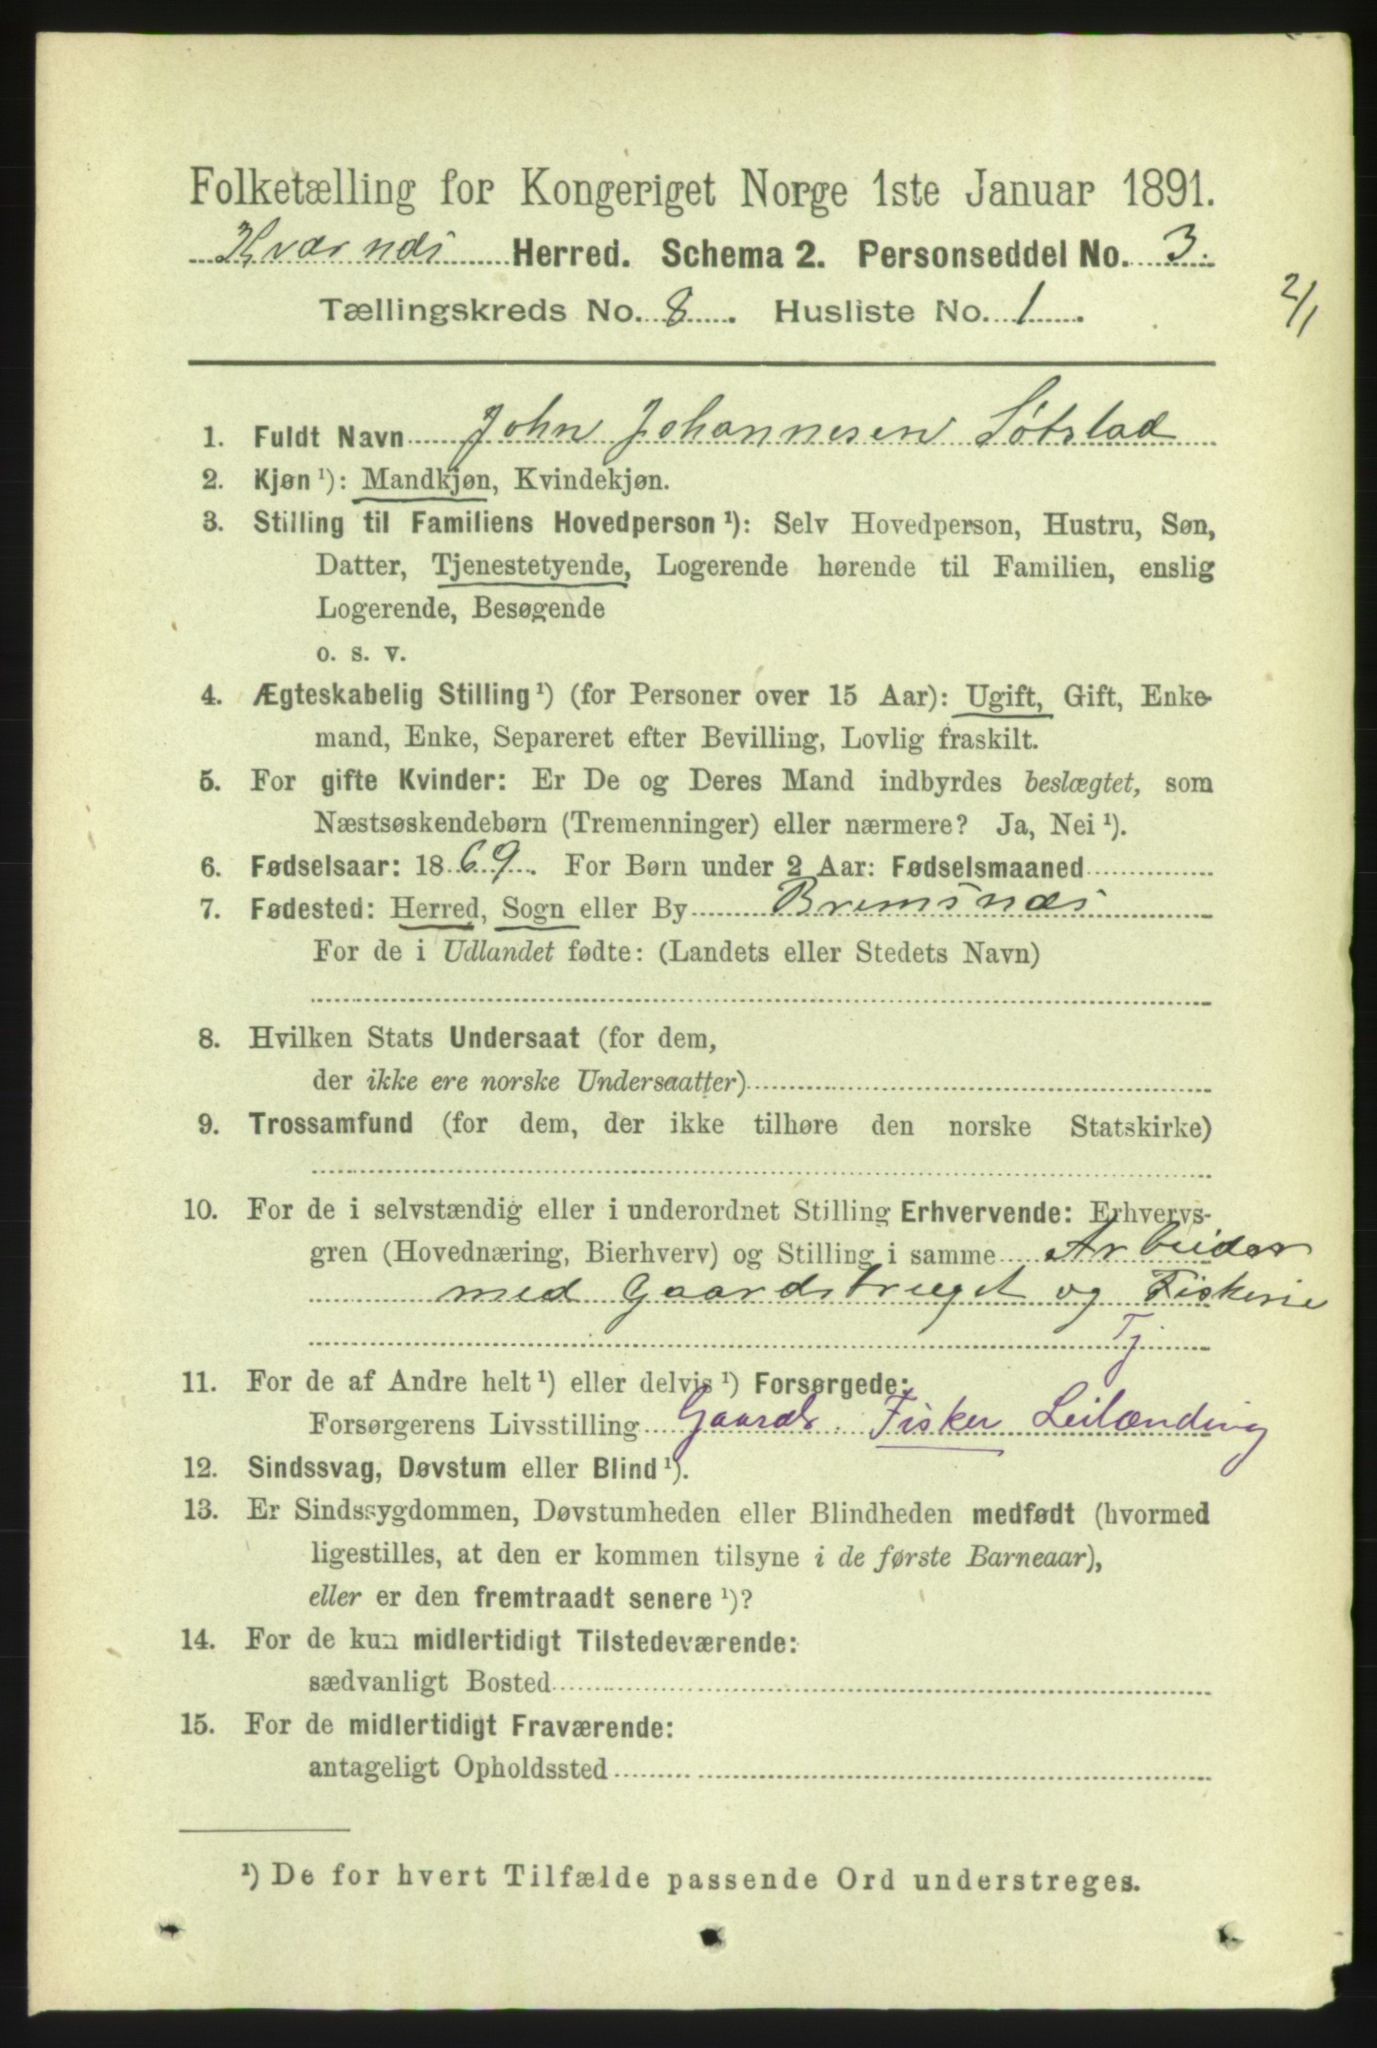 Folketælling for Kongeriget Norge 1ste Januar 1891.
Kværnæs Herred. Schema 2. Personseddel No. 3.
Tællingskreds No. 8. Husliste No. 1.
2/1
1. Fuldt Navn John Johannesen Søtstad
2. Kjøn ¹): Mandkjøn, Kvindekjøn.
3. Stilling til Familiens Hovedperson ¹): Selv Hovedperson, Hustru, Søn,
Datter, Tjenestetyende, Logerende hørende til Familien, enslig
Logerende, Besøgende
o. s. v.
4. Ægteskabelig Stilling ¹) (for Personer over 15 Aar): Ugift, Gift, Enke-
mand, Enke, Separeret efter Bevilling, Lovlig fraskilt.
5. For gifte Kvinder: Er De og Deres Mand indbyrdes beslægtet, som
Næstsøskendebørn (Tremenninger) eller nærmere? Ja, Nei ¹).
6. Fødselsaar: 1869. For Børn under 2 Aar: Fødselsmaaned
7. Fødested: Herred, Sogn eller By Bremsnæs
For de i Udlandet fødte: (Landets eller Stedets Navn)
8. Hvilken Stats Undersaat (for dem,
der ikke ere norske Undersaatter)
9. Trossamfund (for dem, der ikke tilhøre den norske Statskirke)
10. For de i selvstændig eller i underordnet Stilling Erhvervende: Erhvervs-
gren (Hovednæring, Bierhverv) og Stilling i samme Arbeider
med Gaardsbruget og Fiskerie
Tj.
11. For de af Andre helt ¹) eller delvis ¹) Forsørgede:
Forsørgerens Livsstilling Gaardb. Fisker Leilænding
12. Sindssvag, Døvstum eller Blind ¹).
13. Er Sindssygdommen, Døvstumheden eller Blindheden medfødt (hvormed
ligestilles, at den er kommen tilsyne i de første Barneaar),
eller er den fremtraadt senere ¹)?
14. For de kun midlertidigt Tilstedeværende:
sædvanligt Bosted
15. For de midlertidigt Fraværende:
antageligt Opholdssted
¹) De for hvert Tilfælde passende Ord understreges.